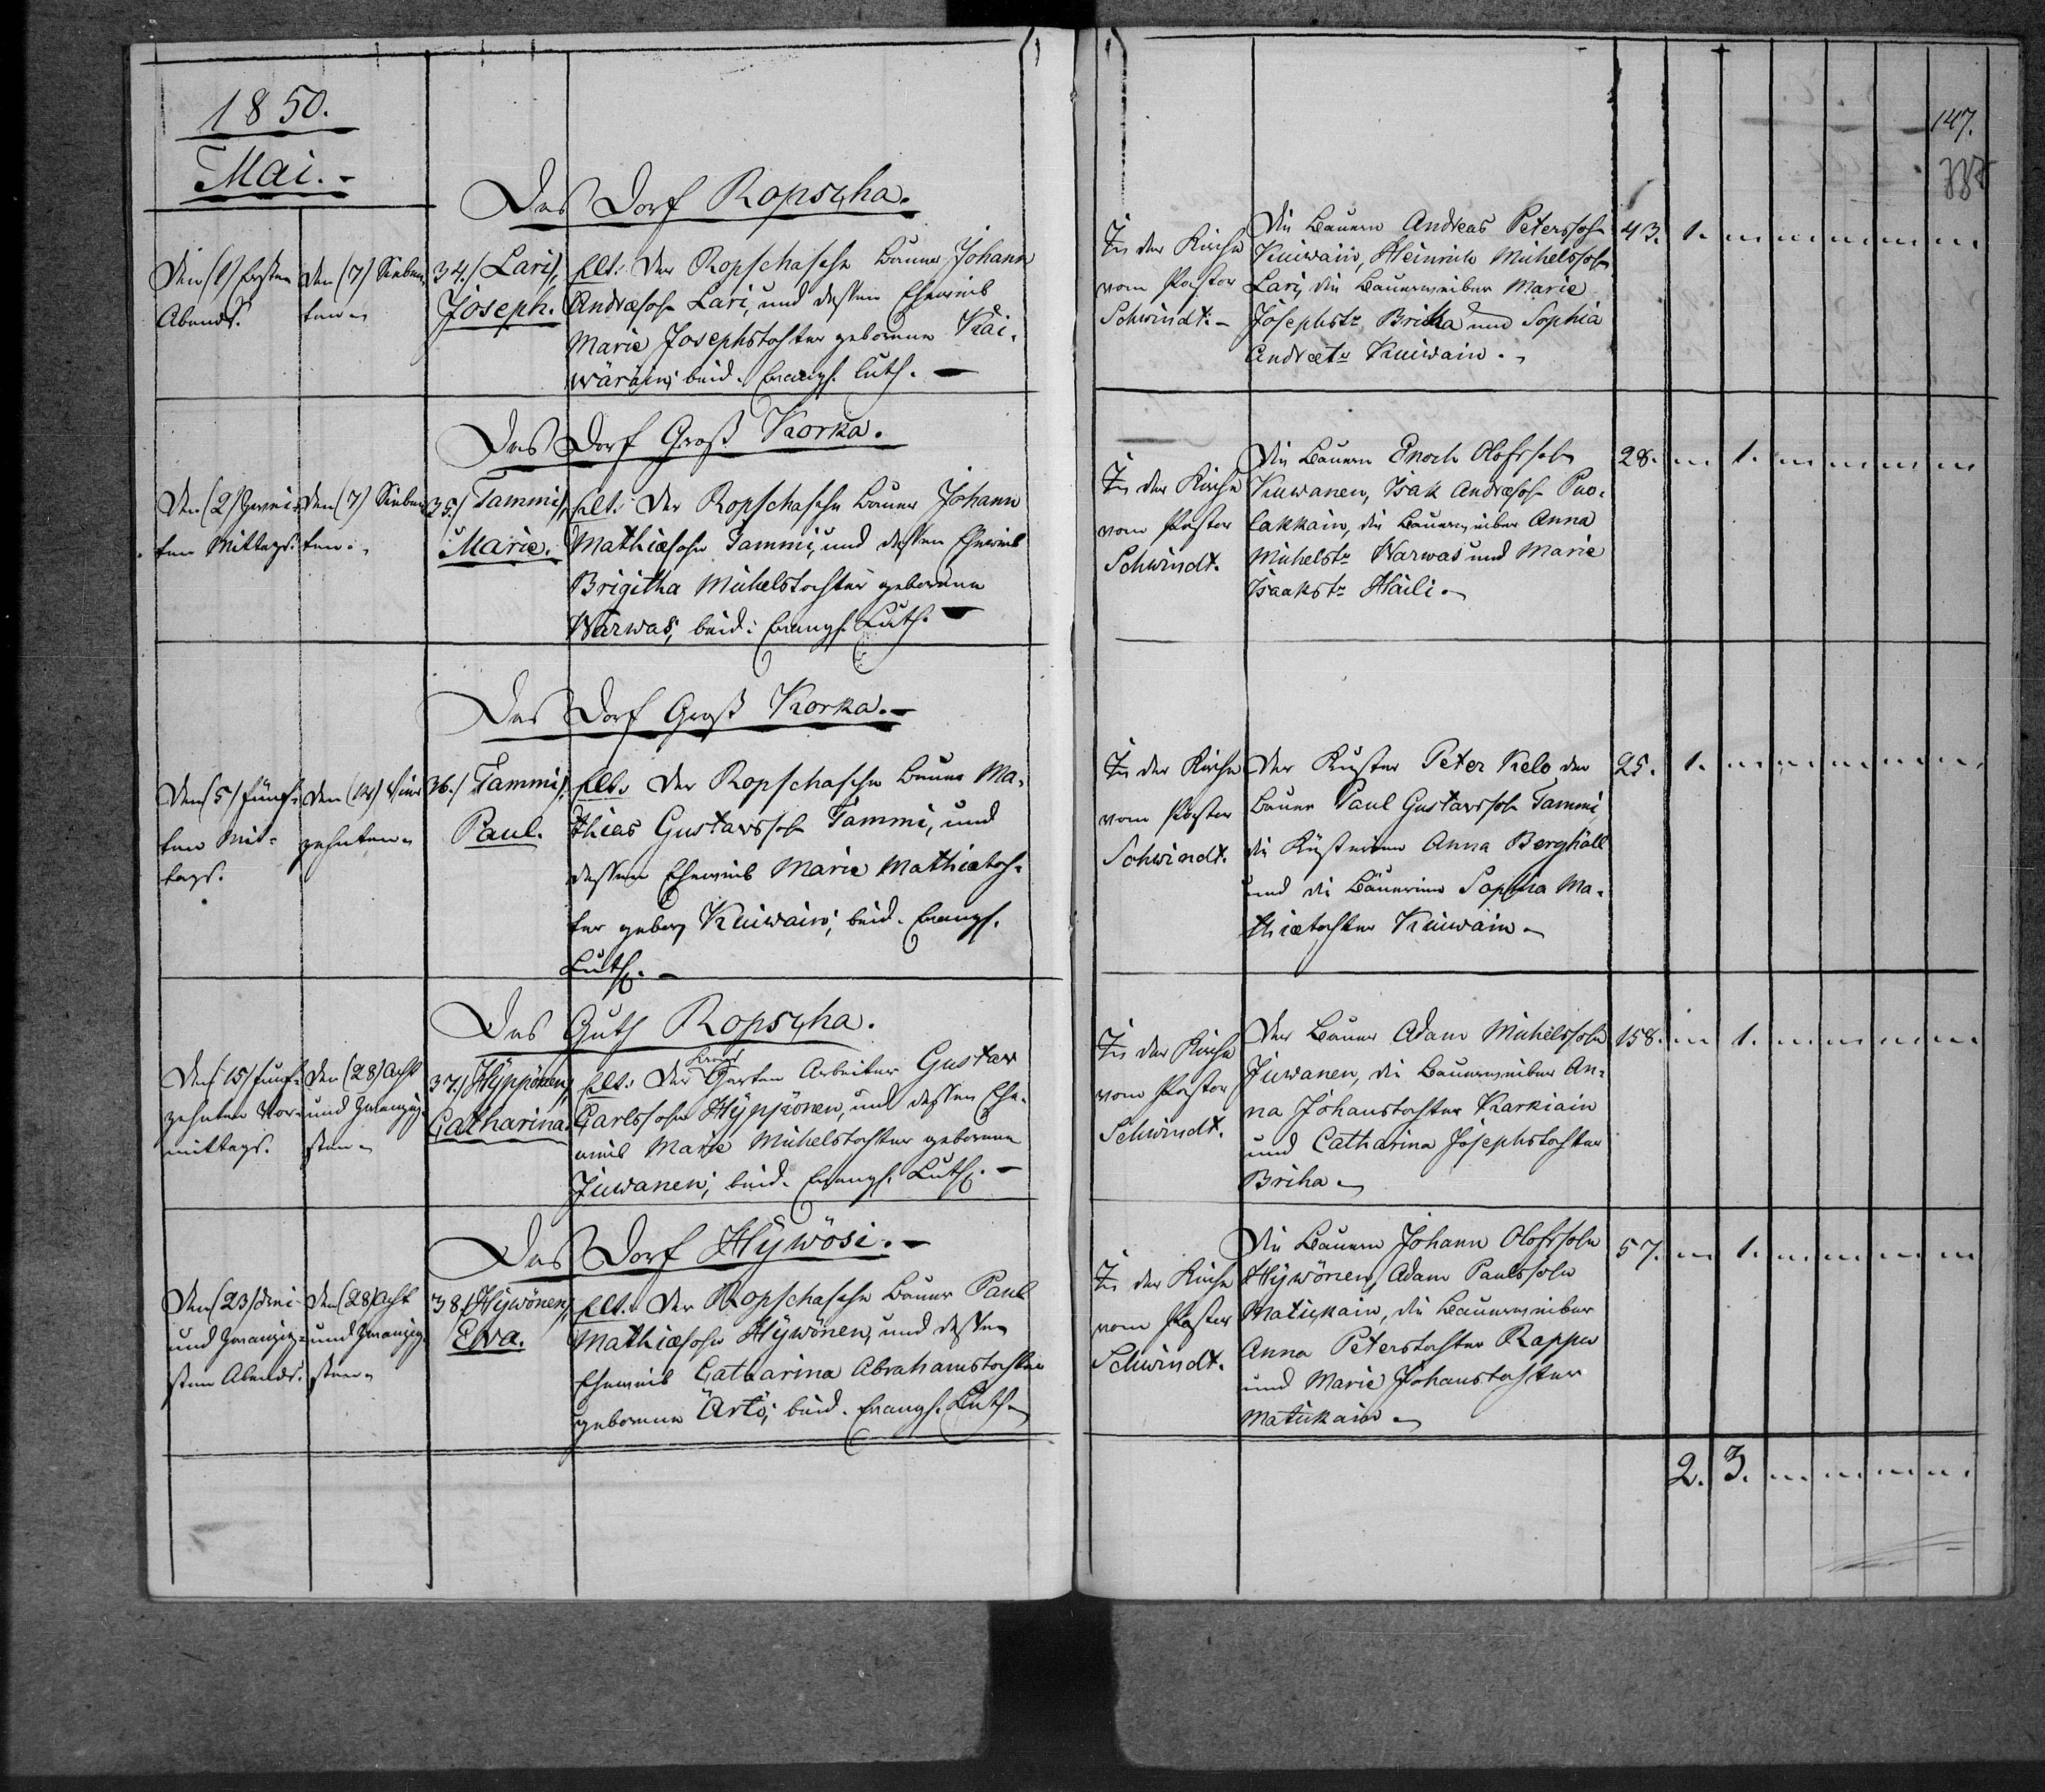 1850.
Mai.-
147.
Das Dorf Ropscha.
Den (1) Ersten
Abends.
Den (7) Sieben-
ten
34./ Lari,
Joseph.
Elt: Der Ropschasche Bauer Johann
Andreæsohn Lari, und dessen Eheweib
Marie Josephstochter geborene Käi-
wäräin; beid. Evangl. Luth.-
In der Kirche
vom Pastor
Schwindt.-
Die Bauern Andreas Peterssohn
Kuiwain, Heinrich Michelssohn
Lari, die Bauerweiber Marie
Josephstr Briha und Sophia
Andreætr Kuiwain.-
43. 1.
Das Dorf Groß Korka.
Den (2) Zwei-
ten Mittags.
Den (7) Sieben-
ten.
35./ Tammi,
Marie.
Elt: Der Ropschasche Bauer Johann
Mathiæsohn Tammi, und dessen Eheweib
Brigitha Michelstochter geborene
Warwas; beid: Evangl. Luth.-
In der Kirche
vom Pastor
Schwindt.
Die Bauern Enoch Olofssohn
Kuwanen, Isak Andreæsohn Puo-
lakkain, die Bauerweiber Anna
Michelstr Warwas und Marie
Isaakstr Häili.-
28. 1.
Das Dorf Groß Korka.-
Den (5) Fünf-
ten Mit-
tags.
Den (14) Vier-
zehnten
36./ Tammi,
Paul.
Elt. Der Ropschasche Bauer Ma-
thias Gustavssohn Tammi, und
dessen Eheweib Marie Mathiætoch-
ter gebor. Kuiwain; beid. Evangl.
Luth.-
In der Kirche
vom Pastor
Schwindt.
Der Küster Peter Kelo der
Bauer Paul Gustavssohn Tammi,
die Küsterinn Anna Berghäll
und die Bäuerinn Sophia Ma-
thiætochter Kuiwain
25. 1.
Das Guth Ropscha.
Den (15) Fünf-
zehnten Vor-
mittags.
Den (28) Acht
und Zwanzig-
sten
37./ Hyppönen,
Catharina.
Elt: Der Garten Arbeiter Gustav
Carlssohn Hyppönen und dessen Ehe-
weib Marie Michelstochter geborene
Juwanen; beid. Evangl. Luth.-
In der Kirche
vom Pastor
Schwindt.
Der Bauer Adam Michelssohn
Juwanen, die Bauerweiber An-
na Johanstochter Karkiain
und Catharina Josephstochter
Briha
158. 1.
Das Dorf Hywösi.-
Den (23) Drei
und Zwanzig-
sten Abends.
Den (28) Acht
und Zwanzig-
sten
38./ Hywönen,
Eva.
Elt. Der Ropschasche Bauer Paul
Mathiæsohn Hywönen, und dessen
Eheweib Catharina Abrahamstochter
geborene Ärtö; beid. Evangl. Luth.
In der Kirche
vom Pastor
Schwindt.
Die Bauern Johann Olofssohn
Hywönen, Adam Paulssohn
Matikain, die Bauerweiber
Anna Peterstochter Rappu
und Marie Johanstochter
Matikain
57. 1.
2. 3.